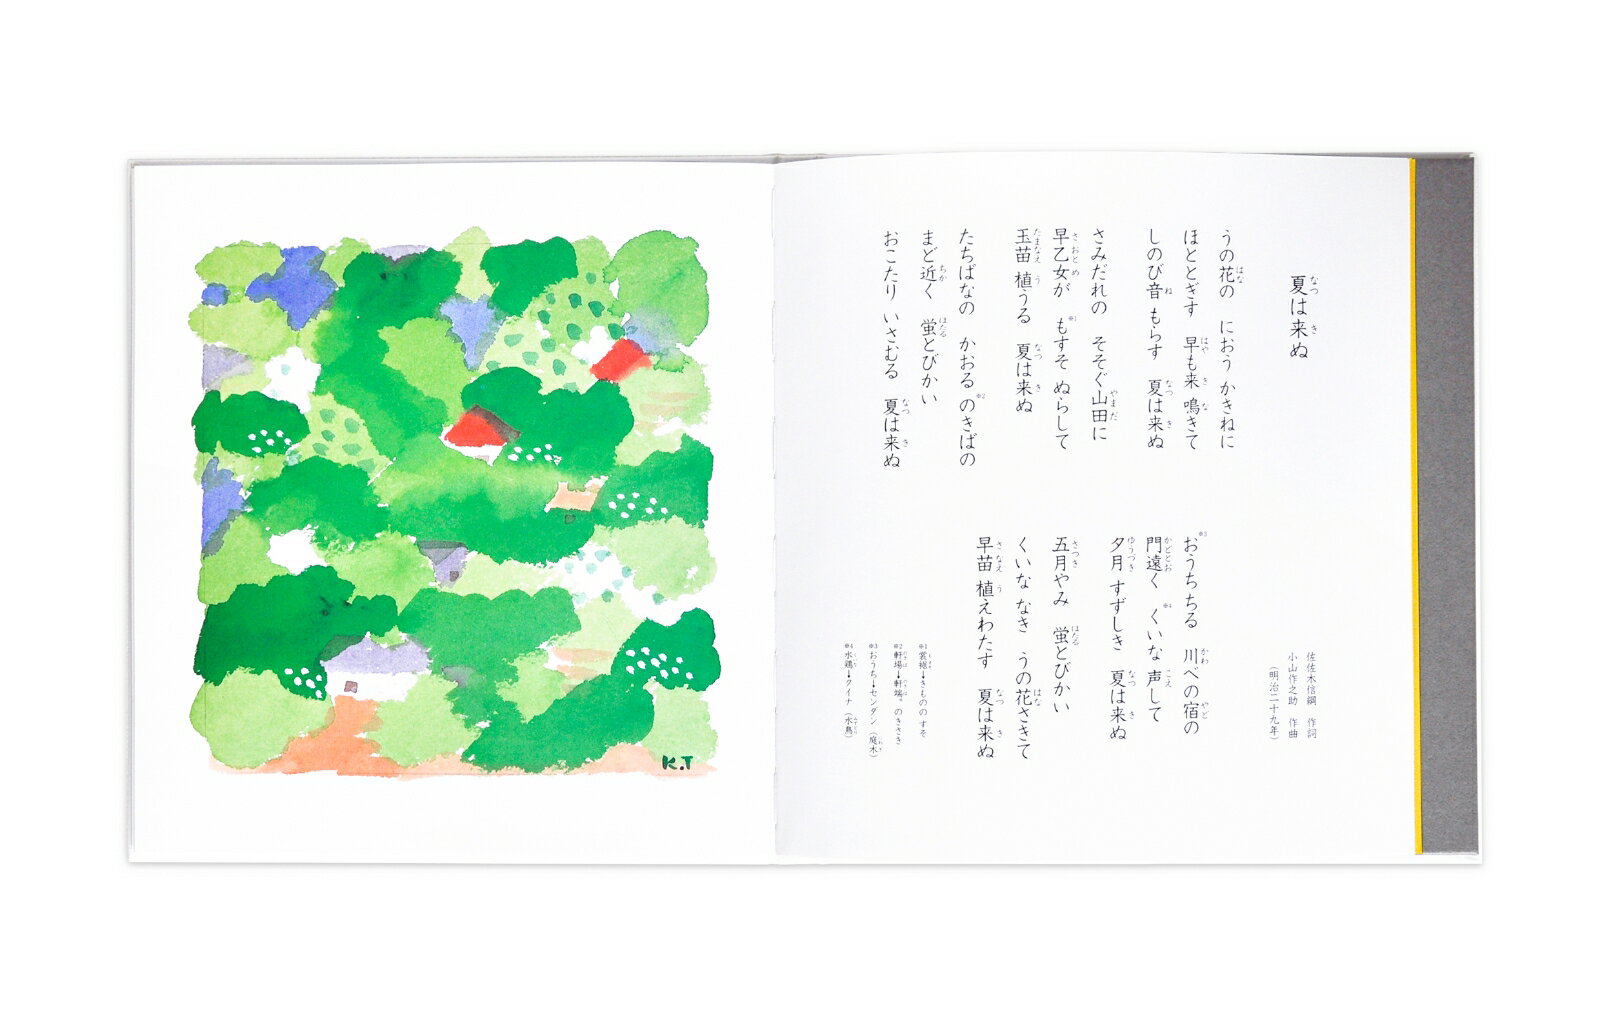 夏は来ぬ
佐佐木信綱 作詞
小山作之助 作曲
(明治二十九年)
うの花の におう かきねに
ほととぎす 早も来 鳴きて
しのび音 もらす 夏は来ぬ
さみだれの そそぐ山田に
早乙女が ※1もすそ ぬらして
玉苗 植うる 夏は来ぬ
たちばなの かおる ※2のきばの
まど近く 蛍とびかい
おこたり いさむる 夏は来ぬ
※3おうちちる 川べの宿の
門遠く ※4くいな 声して
夕月 すずしき 夏は来ぬ
五月やみ 蛍とびかい
くいな なき うの花さきて
早苗 植えわたす 夏は来ぬ
※1 裳裾→きもののすそ
※2 軒場→軒端。のきさき
※3 おうち→センダン(庭木)
※4 水鶏→クイナ(水鳥)
K.T